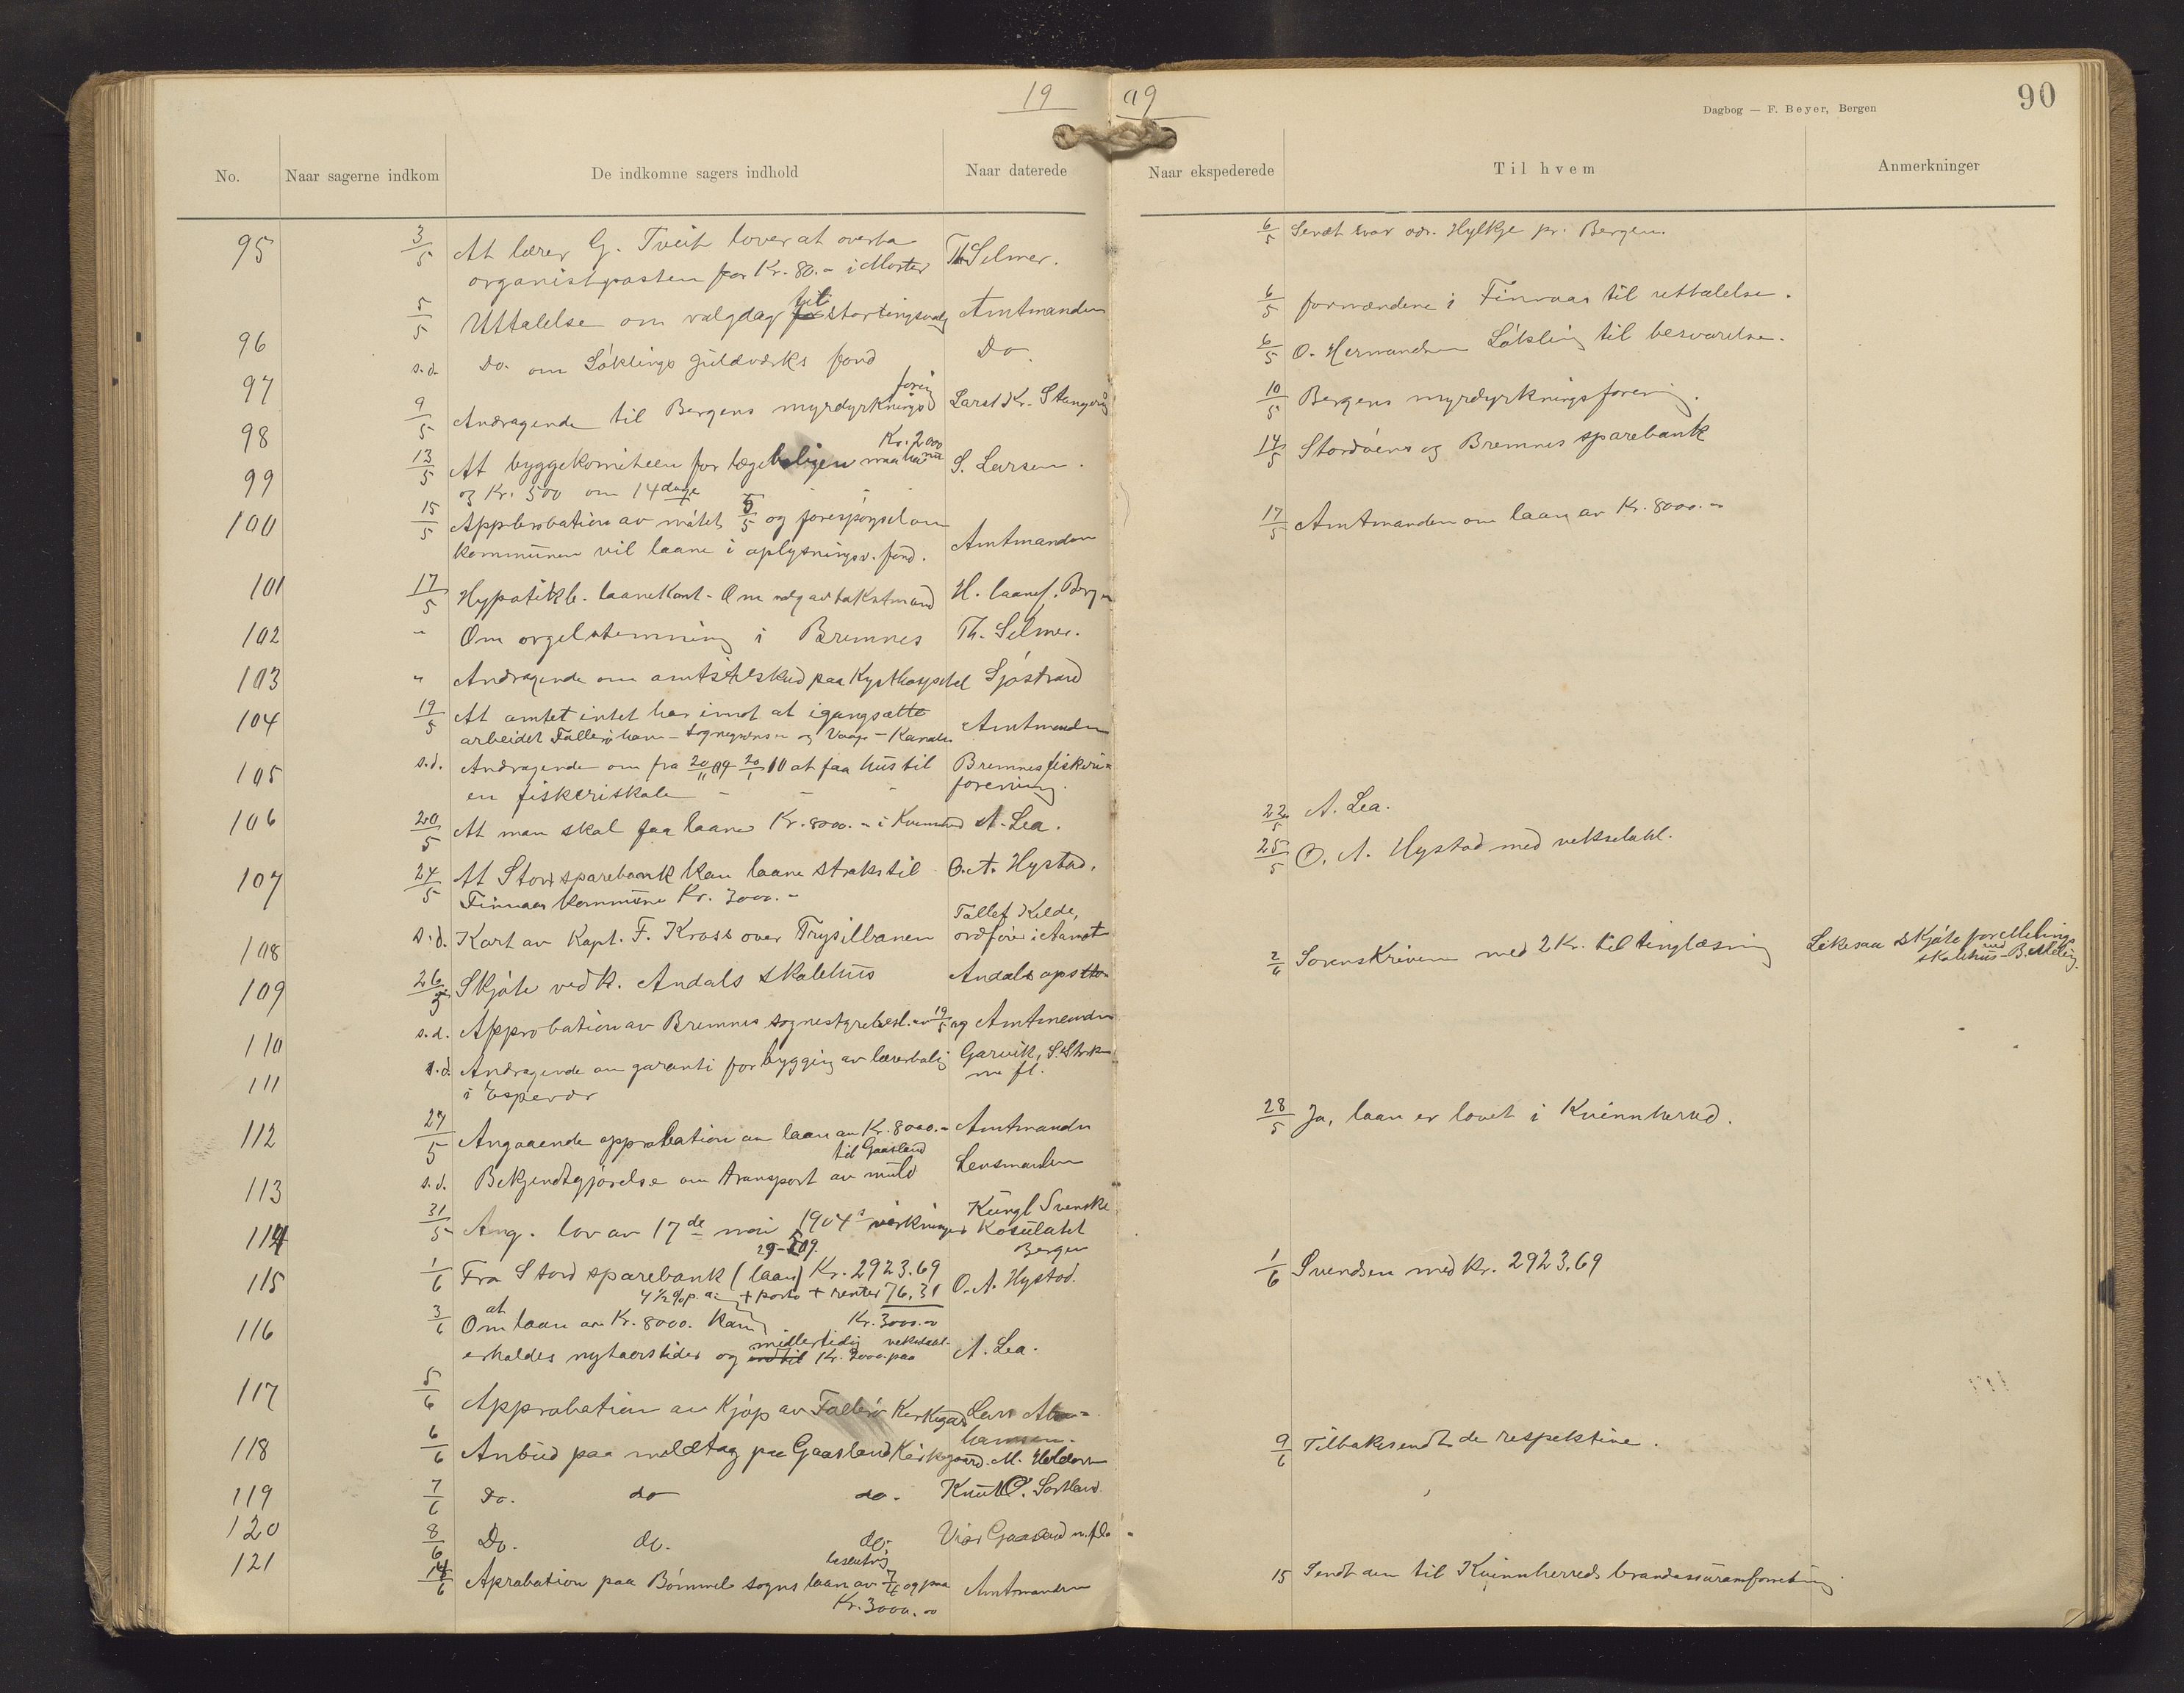 19 09
Dagbog — F. Beyer, Bergen
90
No. Naar sagerne indkom De indkomne sagers indhold Naar daterede Naar ekspederede Til hvem Anmerkninger
95 3/5 At lærer G. Tveit lover at overta Th Selmer. 6/5 Sendt svar adr. Hylkje pr. Bergen.
organistposten for Kr. 80.- i Moster
96 5/5 Uttalelse om valgdag til stortingsvalg Amtmanden 6/5 formændene i Finnaas til uttalelse.
97 s.d. Do. om Lóklings guldværks fond Do. 6/5 O. Hermandsen Lókling til besvarelse.
98 9/5 Andragende til Bergens myrdyrknings foren Lars Kr. Stangeva 10/5 Bergens myrdyrkningsforening.
Kr. 2000
99 13/5 At byggekomiteen for lægeboligen maa ha nu S. Larsen. 14/5 Stordöens og Bremnes sparebank
og Kr. 500 om 14 dage
100 15/5 Approbation av mótet 5/5 og forespórgsel om Amtmanden 17/5 Amtmanden om laan av Kr. 8000.-
kommunen vil laane i oplysningsv. fond.
101 17/5 Hypotikb. laanekont. Om valg av takstmand H. laanef. Bergen
102 " Om orgelstemning i Bremnes Th. Selmer.
103 " Andragende om amtstilskud paa Kysthospital Sjóstrand
104 19/5 At amtet intet har imot at igangsætte Amtmanden
arbeidet Folleróhavn - Sognegrænsen og Vaage - Kanalen
105 s.d. Andragende om fra 20/11 09 20/1 10 at faa hus til Bremnes fiskeri-
en fiskeriskole forening.
106 20/5 At man skal faa laane Kr. 8000.- i Kvinnherred A. Lea. 22/5 A. Lea.
107 24/5 At Stord sparebank kan laane straks til O. A. Hystad. 25/5 O. A. Hystad med vekselobl.
Finnaas kommune Kr. 3000.-
108 s.d. Kart av Kapt. F. Kross over Trysilbanen Tollef Kilde, ordfórer i Aamot
109 26/5 Skjóte vedk. Andals skolehus Andals ops 2/6 Sorenskriveren med 2 Kr. til tinglæsning Likesaa skjóte for Meling
skolehus - B. Meling.
110 s.d. Approbation av Bremnes sognestyrebesl. av 19/5 og Amtmanden
111 s.d. Andragende om garanti for bygging av lærerbolig Garvik, S.
i Espevær m fl.
112 27/5 Angaaende approbation av laan av Kr. 8000.- Amtmanden 28/5 Ja, laan er lovet i Kvinnherred.
til Gaasland
113 s.d. Bekjendtgjórelse om transport av muld Lensmanden
114 31/5 Ang. lov av 17de mai 1904s virkninger Kungl Svenske Kosulatet
29-5 09. Bergen
115 1/6 Fra Stord sparebank (laan) Kr. 2923.69 O. A. Hystad. 1/6 Svendsen med Kr. 2923,69
4 1/2 % p. a. + porto + renter 76,31
Kr. 3000.00
116 3/6 Om at laan av Kr. 8000. kan
erholdes nytaarstider og midlertidig Kr. 3000 paa vekselobl. A. Lea.
117 5/6 Approbation av Kjóp av Folleró Kirkegaard Lars
118 6/6 Anbud paa muldtag paa Gaasland Kirkegaard. M. 9/6 Tilbakesendt de respektive.
119 7/6 Do. do do. Knut O. Sortland
120 8/6 Do. do. do. Vier Gaasland m. fl.
121 14/6 Aprobation paa Bómmel sogns laan av og paa Amtmanden 15 Sendt den til Kvinnherreds brandassuranseforretning
Kr. 3000.00